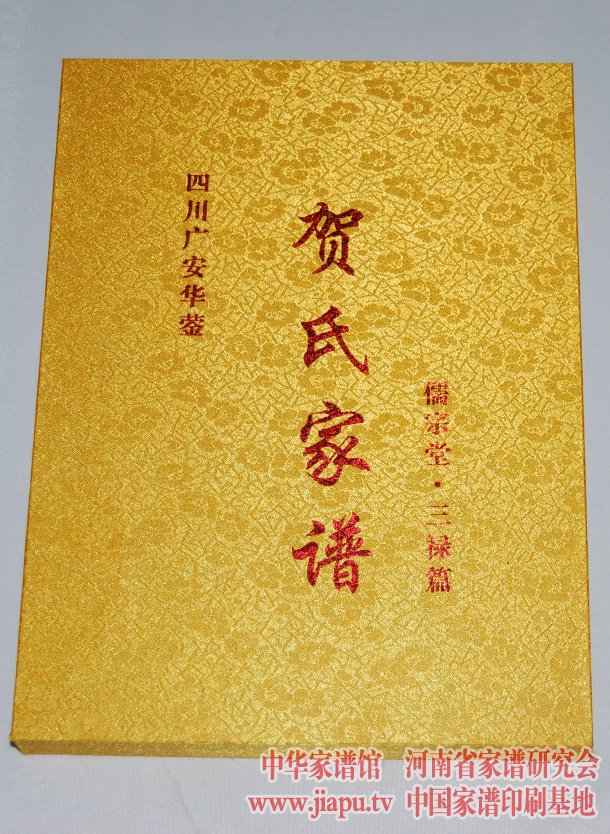 四川广安华蓥
贺氏家谱
儒宗堂·三禄篇
中华家谱馆 河南省家谱研究会
www.jiapu.tv 中国家谱印刷基地